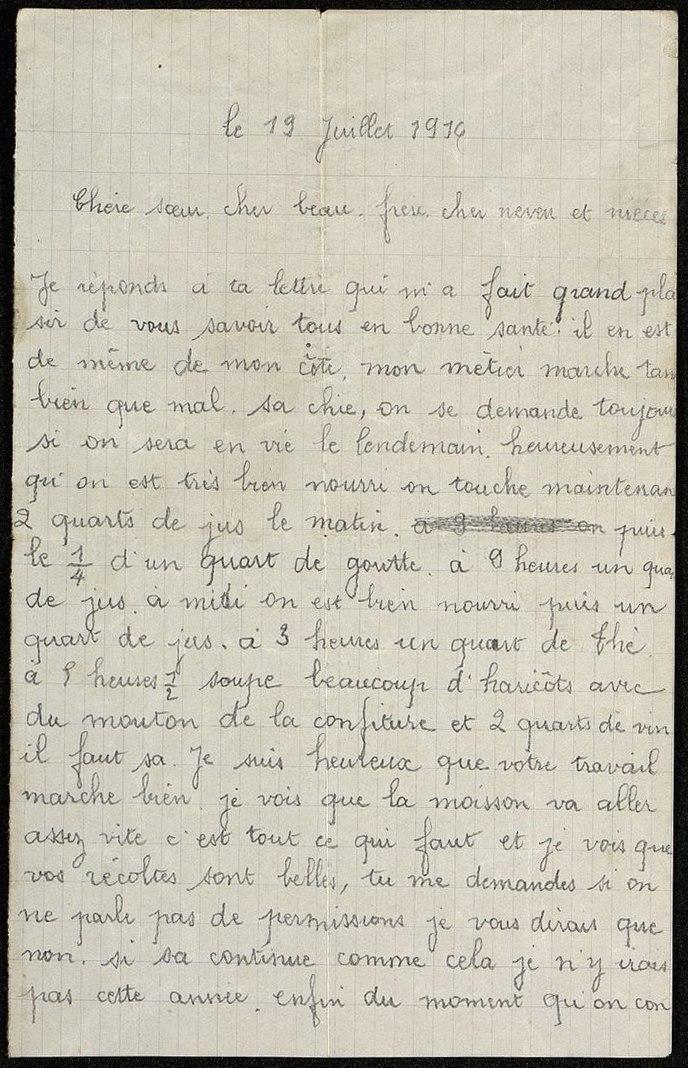 le 19 Juillet 1916
Chère sœur, cher beau. frère. cher neveu et nièces
Je réponds à ta lettre qui m'a fait grand plai
sir de vous savoir tous en bonne santé. il en est
de même de mon côté, mon métier marche tan
bien que mal. sa chie, on se demande toujours
si on sera en vie le lendemain. heureusement
qu'on est très bien nourri on touche maintenan
2 quarts de jus le matin. puis
le 1/4 d'un quart de goutte. à 9 heures un quar
de jus. à midi on est bien nourri puis un
quart de jus. à 3 heures un quart de thé.
à 5 heures 1/2 soupe beaucoup d'haricôts avec
du mouton de la confiture et 2 quarts de vin
il faut sa. Je suis heureux que votre travail
marche bien. je vois que la moisson va aller
assez vite c'est tout ce qui faut et je vois que
vos récoltes sont belles, tu me demandes si on
ne parle pas de permissions je vous dirais que
non. si sa continue comme cela je n'y irais
pas cette année. enfin du moment qu'on con